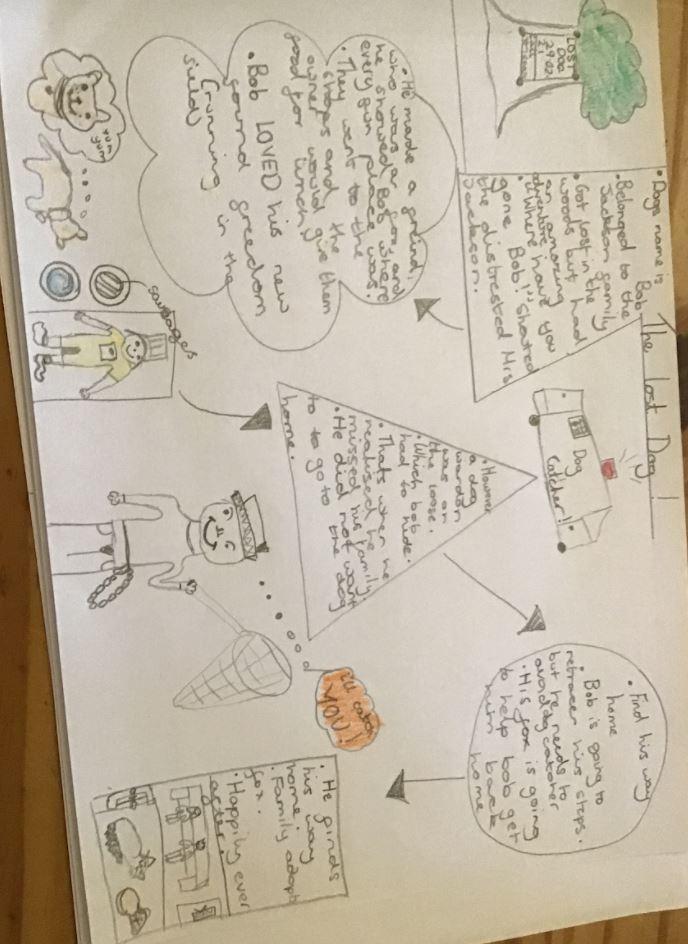 The lost Dog!
LOST
DOG
• Dogs name is
Bob
• Belonged to the
Jackson family
• Got lost in the
woods but had
an amazing
adventure
• "Where have you
gone Bob!" shouted
the distressed Mrs
Jackson.
• He made a friend,
who was a fox, and
he showed Bob where
every fun place was.
• They went to the
shops and the
owners would give them
food for lunch.
• Bob LOVED his new
found freedom
running in the
field
yum
yum
sausages
Dog
Catcher!
• However
a dog
warden
was on
the loose.
• Which bob
had to hide.
• Thats when he
realised he
missed his family.
• He did not want
to to go to the dog
home.
I'll catch
YOU!
• Find his way
home
• Bob is going to
retraces his steps.
but he needs to
avoid dog catcher
• His fox is going
to help bob get
him back
home
• He finds
his way
home.
• Family adopt
fox.
• Happily ever
after.